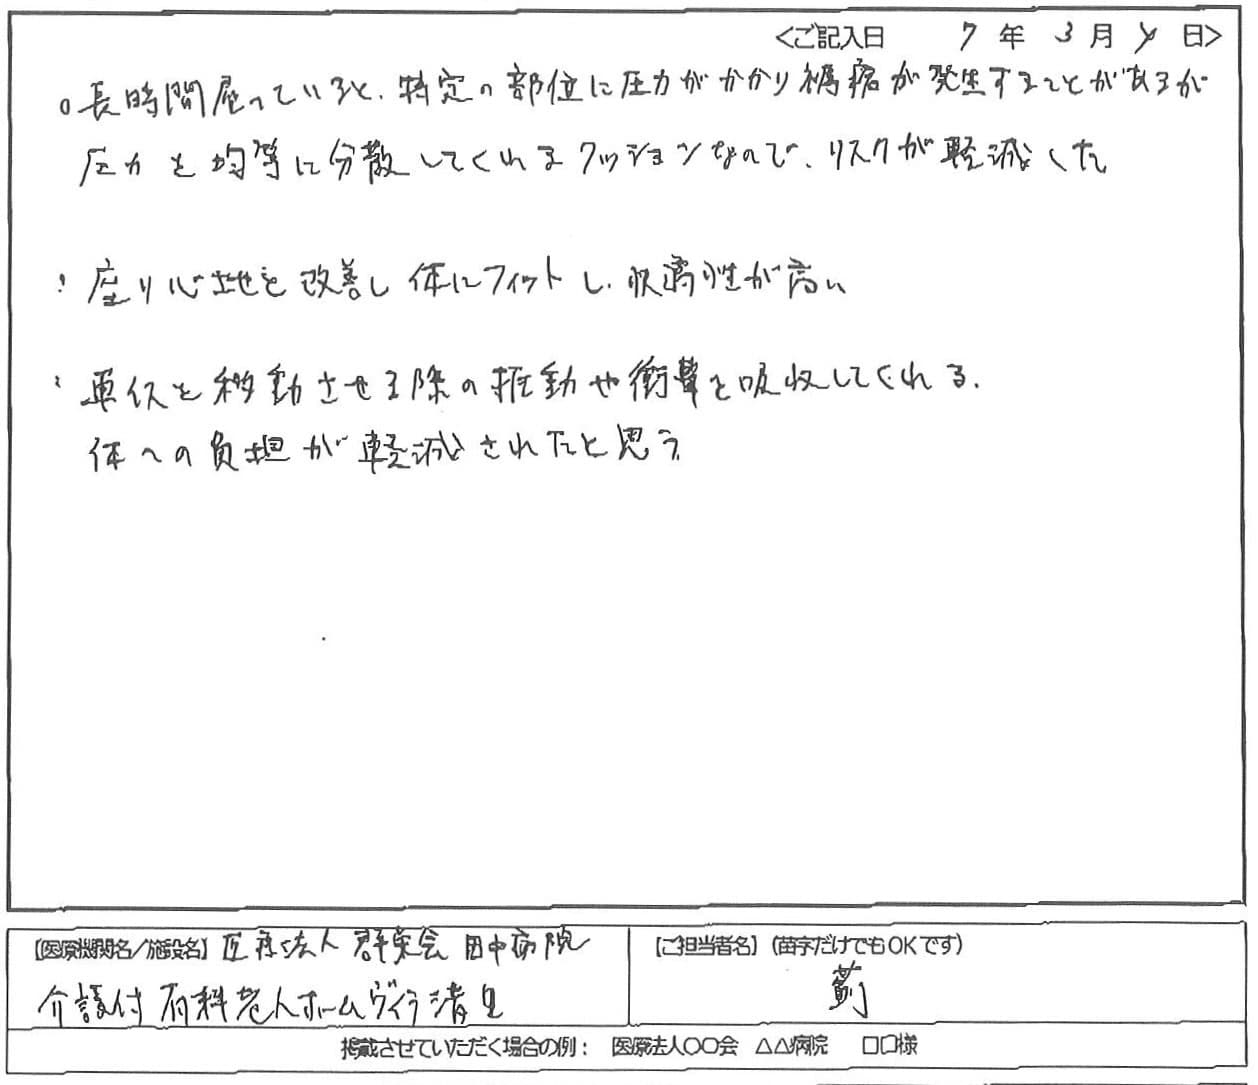 <ご記入日 7年 3月 4日>
○長時間座っていると、特定の部位に圧力がかかり褥瘡が発生することがあるが
圧力を均等に分散してくれるクッションなので、リスクが軽減した
: 座り心地を改善し体にフィットし、快適性が高い
: 車イスを移動させる際の振動や衝撃を吸収してくれる.
体への負担が軽減されたと思う
【医療機関名/施設名】医療法人 群栄会 田中病院
介護付 有料老人ホームヴィラ清里
【ご担当者名】(苗字だけでもOKです)
薊
掲載させていただく場合の例: 医療法人○○会 △△病院 □□様